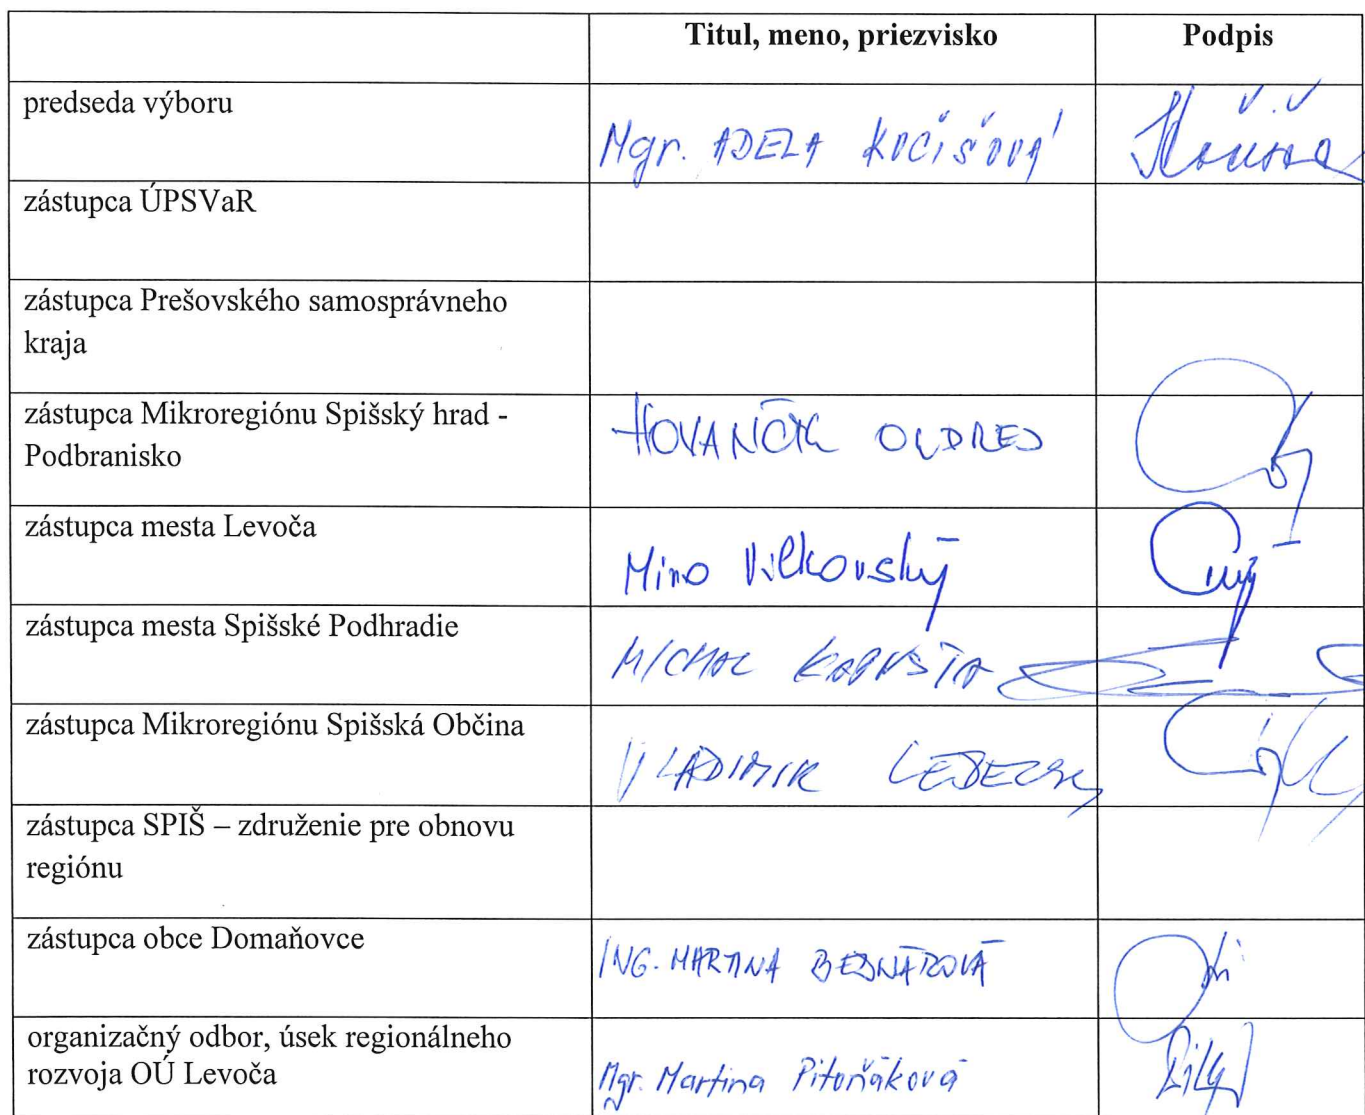 Titul, meno, priezvisko Podpis
predseda výboru
Mgr. ADELA KOČIŠOVÁ
zástupca ÚPSVaR
zástupca Prešovského samosprávneho
kraja
zástupca Mikroregiónu Spišský hrad -
Podbranisko
HOVANČÍK ONDREJ
zástupca mesta Levoča
Miro Vilkovský
zástupca mesta Spišské Podhradie
MICHAL KAPUSTA
zástupca Mikroregiónu Spišská Občina
VLADIMIR
zástupca SPIŠ – združenie pre obnovu
regiónu
zástupca obce Domaňovce
ING. MARTINA BEDNÁROVÁ
organizačný odbor, úsek regionálneho
rozvoja OÚ Levoča
Mgr. Martina Pitoňáková